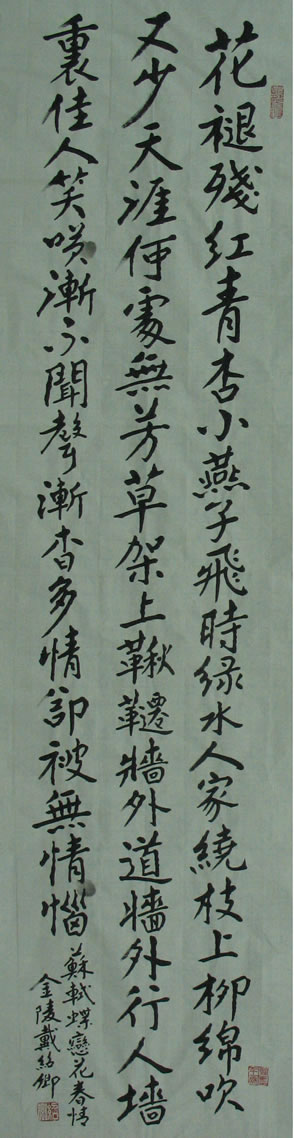 花褪殘紅青杏小燕子飛時綠水人家繞枝上柳綿吹
又少天涯何處無芳草架上鞦韆牆外道牆外行人墻
裏佳人笑咲漸不聞聲漸杳多情卻被無情惱
蘇軾蝶戀花春情
金陵戴紹卿